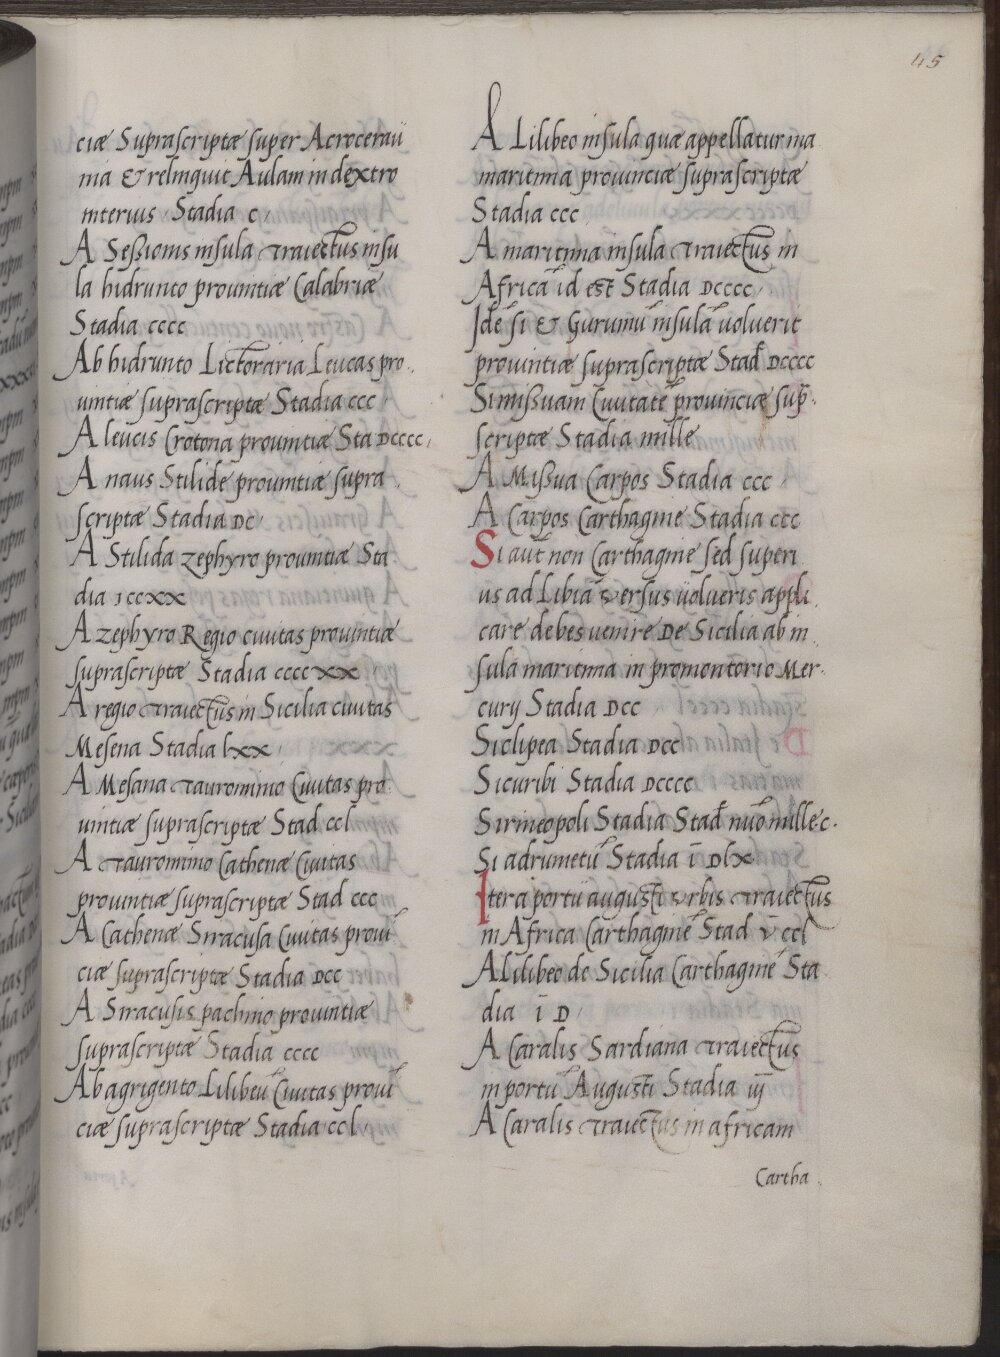 45
ciæ Supraſcriptæ ſuper Acrocerau
nia & relinquit Aulam in dextro
interius Stadia c
A Seſsionis inſula traiectus inſu
la hidrunto prouintiæ Calabriæ
Stadia cccc
Ab hidrunto Lictoraria Leucas pro
uintiæ ſupraſcriptæ Stadia ccc
A leucis Crotona prouintiæ Sta Dcccc
A naus Stilide prouintiæ ſupra
ſcriptæ Stadia DC
A Stilida zephyro prouintiæ Sta
dia ıccxx
A zephyro Regio ciuitas prouintiæ
supraſcriptæ Stadia ccccxx
A regio traiectus in Sicilia ciuitas
Meſena Stadia lxx
A Meſana taurominio Ciuitas pro
uintiæ ſupraſcriptæ Stad ccl
A tauromino Cathenæ Ciuitas
prouintiæ ſupraſcriptæ Stad ccc
A Cathenæ Siracuſa Ciuitas proui
ciæ ſupraſcriptæ Stadia Dcc
A Siracuſis pachino prouintiæ
ſupraſcriptæ Stadia cccc
Ab agrigento Lilibeū Ciuitas proui
ciæ ſupraſcriptæ Stadia ccl
A Lilibeo inſula quæ appellatur ma
maritima prouinciæ ſupraſcriptæ
Stadia ccc
A maritima inſula traiectus in
Africā id est Stadia Dcccc
Idē ſi & Gurumū inſulā uoluerit
prouintiæ ſupraſcriptæ Stad Dcccc
Simiſsuam Ciuitatē prouinciæ ſup̄
ſcriptæ Stadia mille
A Miſsua Carpos Stadia ccc
A Carpos Carthagine Stadia ccc
Si aut̄ non Carthagine ſed ſuperi
us ad Libiā verſus uolueris appli
care debes uenire De Sicilia ab in
ſula maritima in promontorio Mer
curij Stadia Dcc
Siclipea Stadia Dcc
Sicuribi Stadia Dcccc
Sirineopoli Stadia Stad nūo mille c.
Si adrumetū Stadia ī Dlx
Iterā portū augusti vrbis traiectus
in Africa Carthaginē Stad v̄ ccl
A lilibeo de Sicilia Carthaginē Sta
dia ī D
A Caralis Sardiana traiectus
in portū Augusti Stadia iij
A Caralis traiectus in africam
Cartha